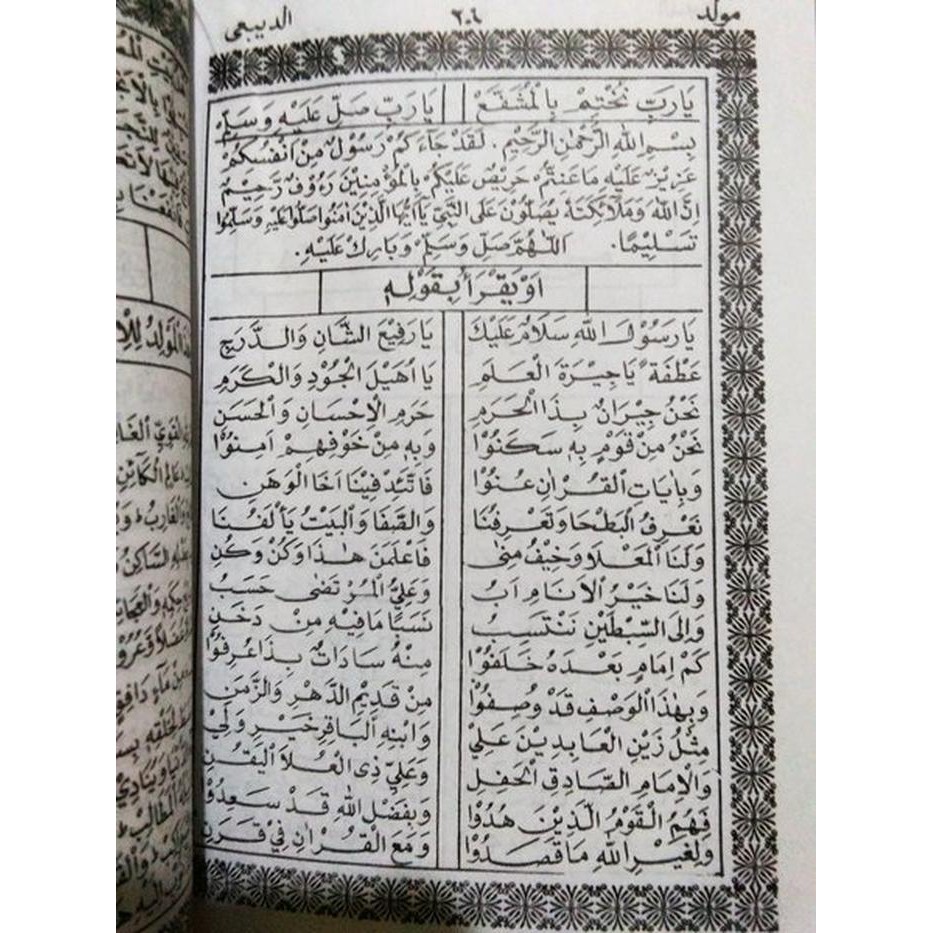 مولد ٢٠٦ الديبعي
يَارَبِّ نَخْتِمْ بِالْمُشَفَّعْ يَارَبِّ صَلِّ عَلَيْهِ وَسَلِّمْ
بِسْمِ اللهِ الرَّحْمٰنِ الرَّحِيْمِ . لَقَدْ جَاءَكُمْ رَسُوْلٌ مِنْ اَنْفُسِكُمْ
عَزِيْزٌ عَلَيْهِ مَا عَنِتُّمْ حَرِيْصٌ عَلَيْكُمْ بِالْمُؤْمِنِيْنَ رَءُوْفٌ رَحِيْمٌ
اِنَّ اللهَ وَمَلَائِكَتَهُ يُصَلُّوْنَ عَلَى النَّبِيِّ يَااَيُّهَا الَّذِيْنَ اٰمَنُوْا صَلُّوْا عَلَيْهِ وَسَلِّمُوْا
تَسْلِيْمًا. اَللّٰهُمَّ صَلِّ وَسَلِّمْ وَبَارِكْ عَلَيْهِ.
اَوْ يَقْرَأُ بِقَوْلِهِ
يَا رَسُوْلَ اللهِ سَلَامٌ عَلَيْكَ يَا رَفِيْعَ الشَّانِ وَالدَّرَجِ
عَطْفَةً يَا جِيْرَةَ الْعَلَمِ يَا اُهَيْلَ الْجُوْدِ وَالْكَرَمِ
نَحْنُ جِيْرَانٌ بِذَا الْحَرَمِ حَرَمِ الْاِحْسَانِ وَالْحَسَنِ
نَحْنُ مِنْ قَوْمٍ بِهِ سَكَنُوْا وَبِهِ مِنْ خَوْفِهِمْ اَمِنُوْا
وَبِاٰيَاتِ الْقُرْاٰنِ عُنُوْا فَاتَّئِدْ فِيْنَا اَخَا الْوَهَنِ
نَعْرِفُ الْبَطْحَا وَتَعْرِفُنَا وَالصَّفَا وَالْبَيْتُ يَأْلَفُنَا
وَلَنَا الْمَعْلَا وَخِيْفُ مِنٰى فَاعْلَمَنْ هٰذَا وَكُنْ وَكُنِ
وَلَنَا خَيْرُ الْاَنَامِ اَبُ وَعَلِيُّ الْمُرْتَضٰى حَسَبُ
وَاِلَى السِّبْطَيْنِ نَنْتَسِبُ نَسَبًا مَا فِيْهِ مِنْ دَخَنِ
كَمْ اِمَامٍ بَعْدَهُ خَلَفُوْا مِنْهُ سَادَاتٌ بِذَا عُرِفُوْا
وَبِهٰذَا الْوَصْفِ قَدْ وُصِفُوْا مِنْ قَدِيْمِ الدَّهْرِ وَالزَّمَنِ
مِثْلُ زَيْنِ الْعَابِدِيْنَ عَلِي وَابْنِهِ الْبَاقِرِ خَيْرِ وَلِيْ
وَالْاِمَامِ الصَّادِقِ الْحَفِلِ وَعَلِيٍّ ذِى الْعُلَا الْيَقِنِ
فَهُمُ الْقَوْمُ الَّذِيْنَ هُدُوْا وَبِفَضْلِ اللهِ قَدْ سَعِدُوْا
وَلِغَيْرِ اللهِ مَا قَصَدُوْا وَمَعَ الْقُرْاٰنِ فِيْ قَرَنِ